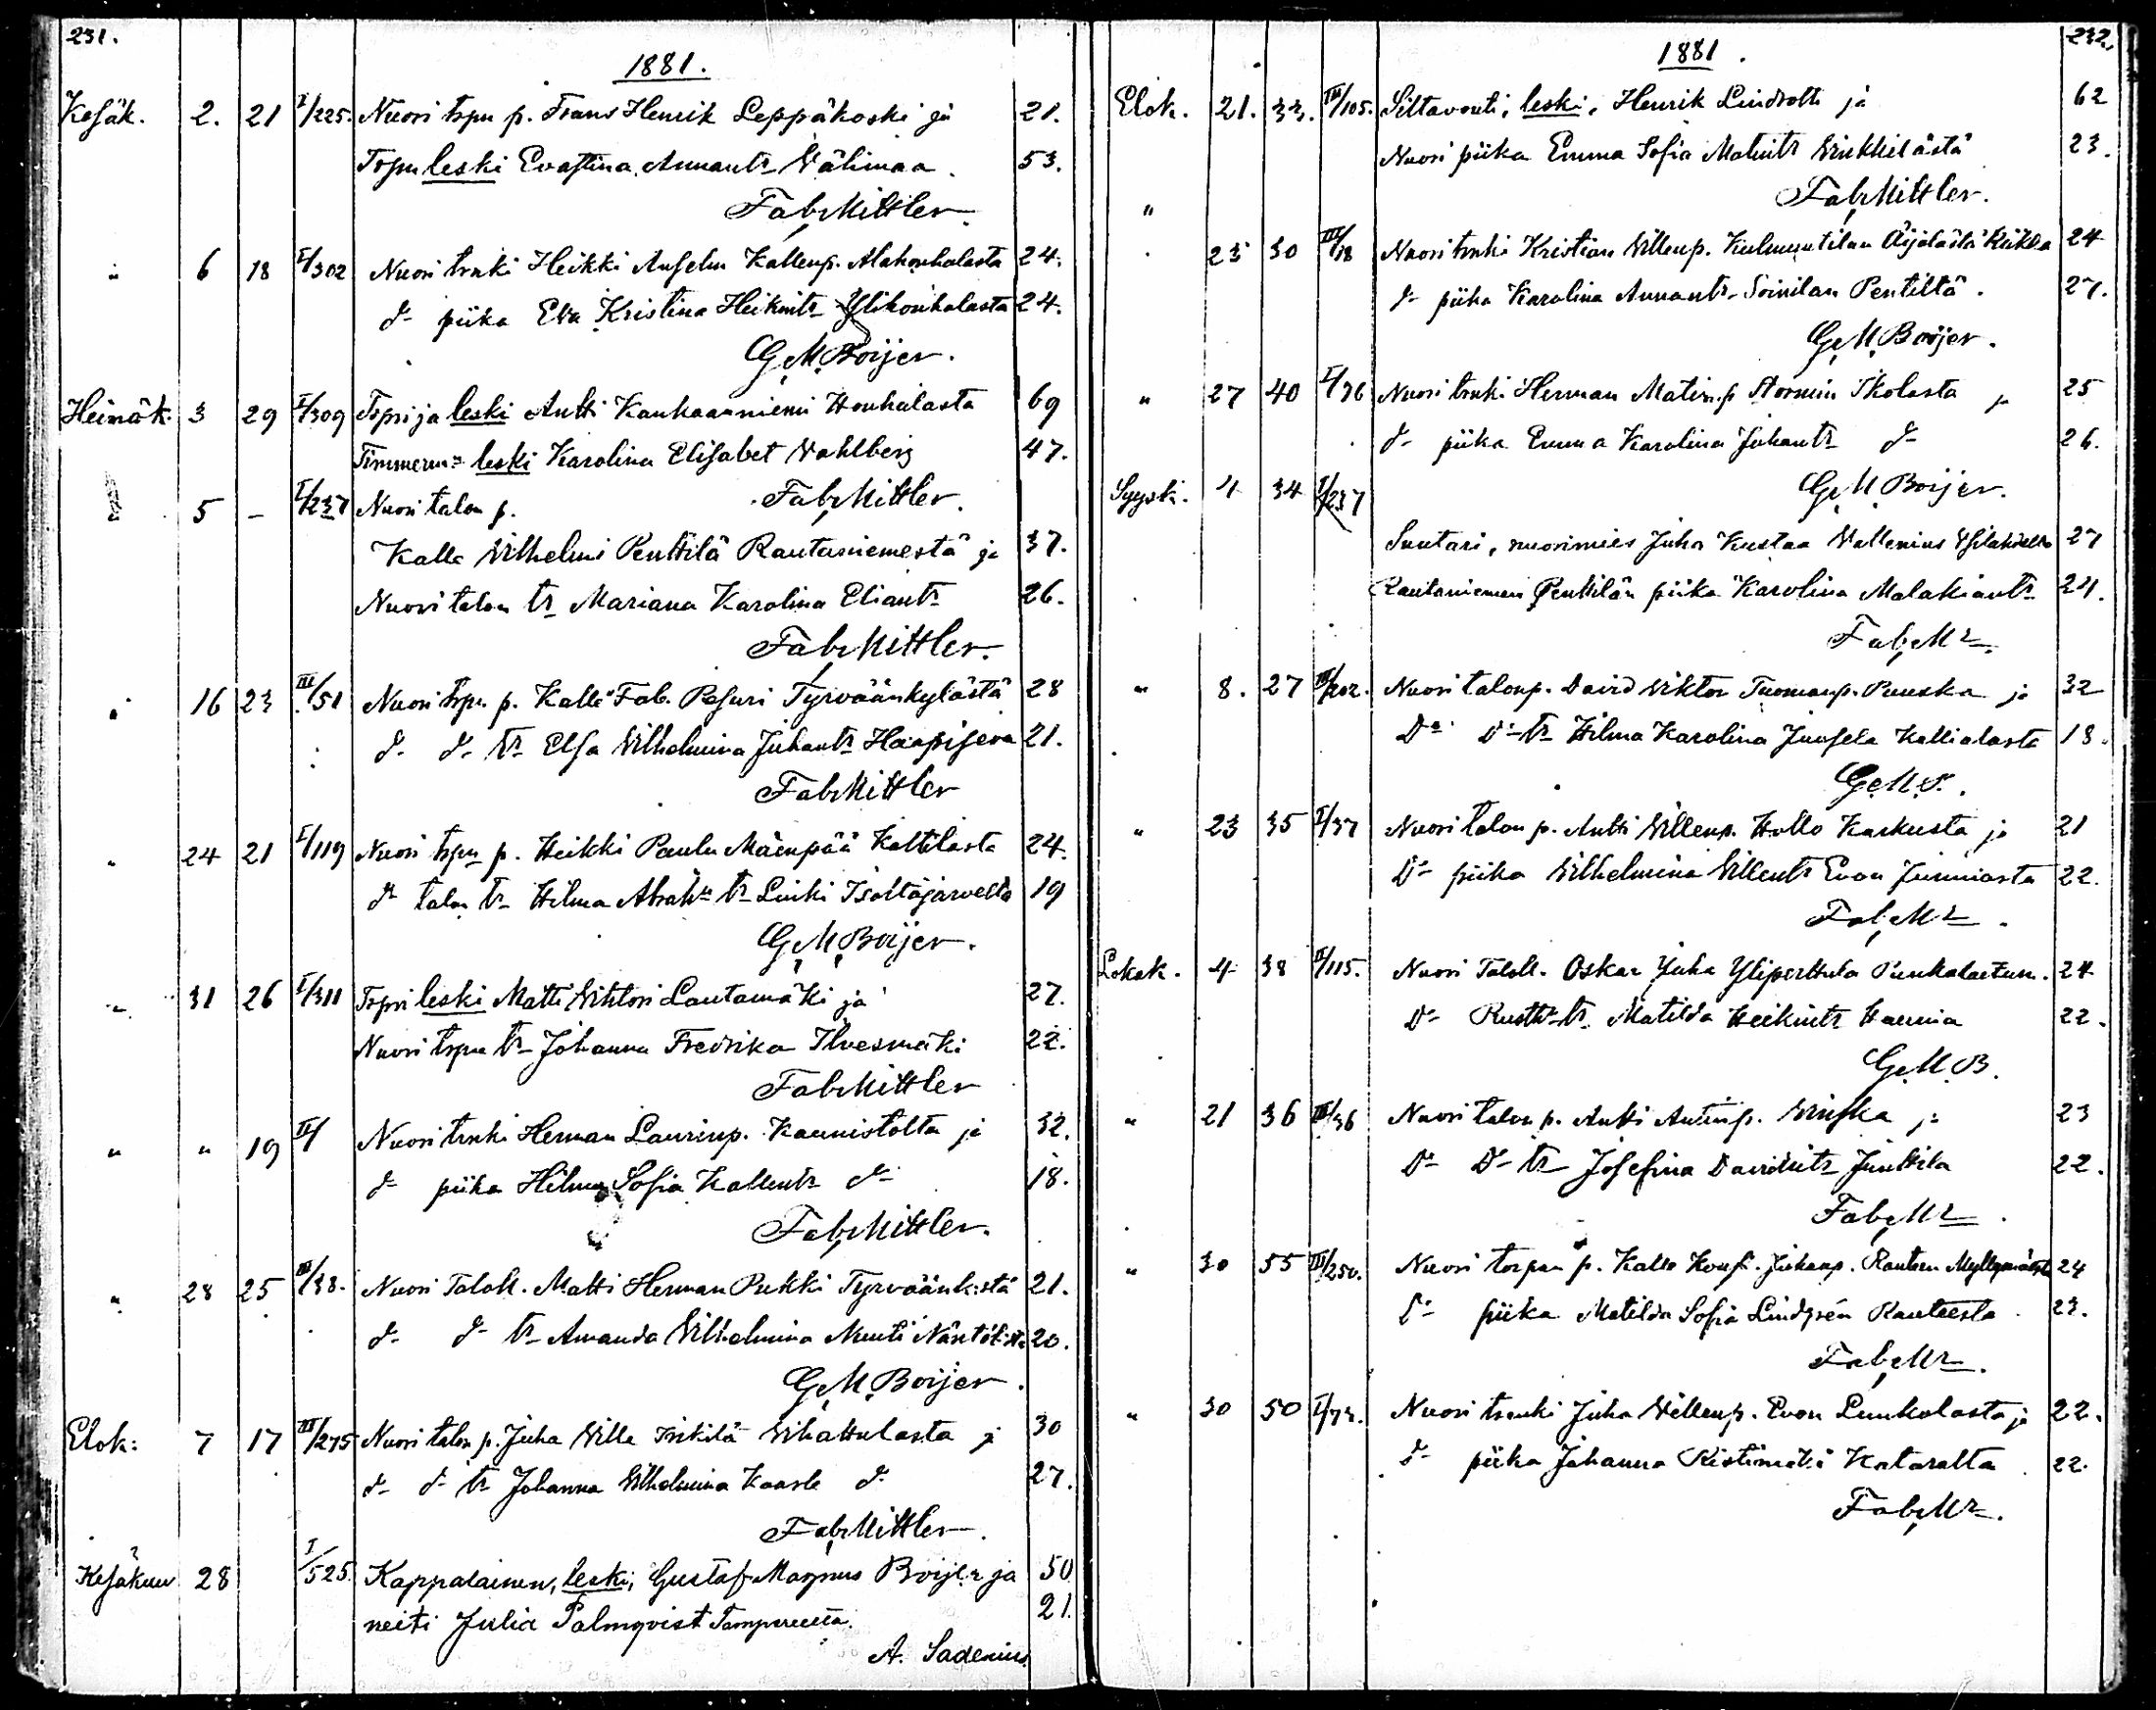 231.
1881.
Kesäk. 2. 21 I/225. Nuori tspu p. Frans Henrik Leppäkoski ja 21.
Tspu leski Evastina Annantr Välimaa 53.
Fab. Mittler.
" 6 18 I/302 Nuori trnki Heikki Anselm Kallenp. Alahouhalasta 24.
d- piika Eva Kristina Heikintr Ylihouhalasta 24.
G. M. Boijer.
Heinäk. 3 29 I/309 Tspu ja leski Antti Kankaanniemi Houhalasta 69
Timmerm. leski Karolina Elisabet Wahlberg 47.
Fab. Mittler.
5 - I/237 Nuori talon p.
Kalle Vilhelmi Penttilä Rautaniemestä ja 37.
Nuori talon tr Mariana Karolina Eliantr 26.
Fab. Mittler.
" 16 23 III/51 Nuori tspu. p. Kalle Fab. Pesuri Tyrväänkylästä 28
d- d- tr Elsa Vilhelmina Juhantr Haapijeva 21.
Fab. Mittler
" 24 21 I/119 Nuori tspu p. Heikki Paulu Mäenpää Kaltilasta 24.
d- talon tr Hilma Abrah. tr Linki Isoltäjärveltä 19
G. M. Boijer.
" 31 26 I/311 Tspu leski Matti Vihtori Lautamäki ja 27.
Nuori tspu tr Johanna Fredrika Ilvesmäki 22.
Fab. Mittler
" " 19 II/ Nuori trnki Herman Laurinp. Kaunistolta ja 32.
d- piika Hilma Sofia Kallentr d- 18.
Fab. Mittler.
" 28 25 III/38. Nuori Taloll. Matti Herman Pukki Tyrväänk:stä 21.
d- d- tr Amanda Vilhelmina Nuuti Näntök:sta 20.
G. M. Boijer.
Elok: 7 17 III/275 Nuori talon p. Juha Ville Iikilä Vihattulasta ja 30
d- d- tr Johanna Vilhelmina Kaarle d- 27.
Fab. Mittler.
Kesäkuu 28 I/525. Kappalainen, leski, Gustaf Magnus Boijer ja 50
neiti Julia Palmqvist Tampereelta. 21.
A. Sadenius.
232.
1881.
Elok. 21. 33. III/105. Siltavouti, leski, Henrik Lindroth ja 62
Nuori piika Emma Sofia Matintr Vinkkilästä 23.
Fab. Mittler.
" 23 30 III/18 Nuori trnki Kristian Villenp. Kulmuntilan Äijälästä Kiikka 24
d- piika Karolina Annantr Soinilan Pentiltä. 27.
G. M. Boijer.
" 27 40 I/36 Nuori trnki Herman Matinp. Stormin Ikolasta ja 25
d- piika Emma Karolina Juhantr d- 26.
G. M. Boijer.
Syysk. 4 34 I/237
Suutari, nuorimies Juha Kustaa Vallenius 27
Rautaniemen Penttilän piika Karolina Malakiantr 24.
Fab. Mr.
" 8. 27 III/202. Nuori talonp. David Viktor Tuomanp. Ruuska ja 32
Do Do tr Hilma Karolina Juusela Kallialasta 18.
" 23 35 I/37 Nuori talon p. Antti Villenp. Hollo Karkusta ja 21
Do piika Vilhelmina Villentr Evon Junniasta 22.
Fab. Mr.
Lokak. 4 38 II/115. Nuori Taloll. Oskar Juha Yliperttula Punkalaitum. 24
Do Rustt. tr. Matilda Heikintr Hannia 22.
G. M. B.
" 21 36 III/36 Nuori talon p. Antti Antinp. ja 23
Do Do tr Josefina Davidintr Junttila 22.
Fab. Mr.
" 30 55 III/250. Nuori torpan p. Kalle Konst. Juhanp. Rautsen Myllymäestä 24
Do piika Matilda Sofia Lindgrén Rauteesta 23.
Fab. Mr.
" 30 50 I/73. Nuori trenki Juha Villenp. Evon Luukolasta ja 22.
d- piika Johanna Ristimäki Kataralta 22.
Fab. Mr.